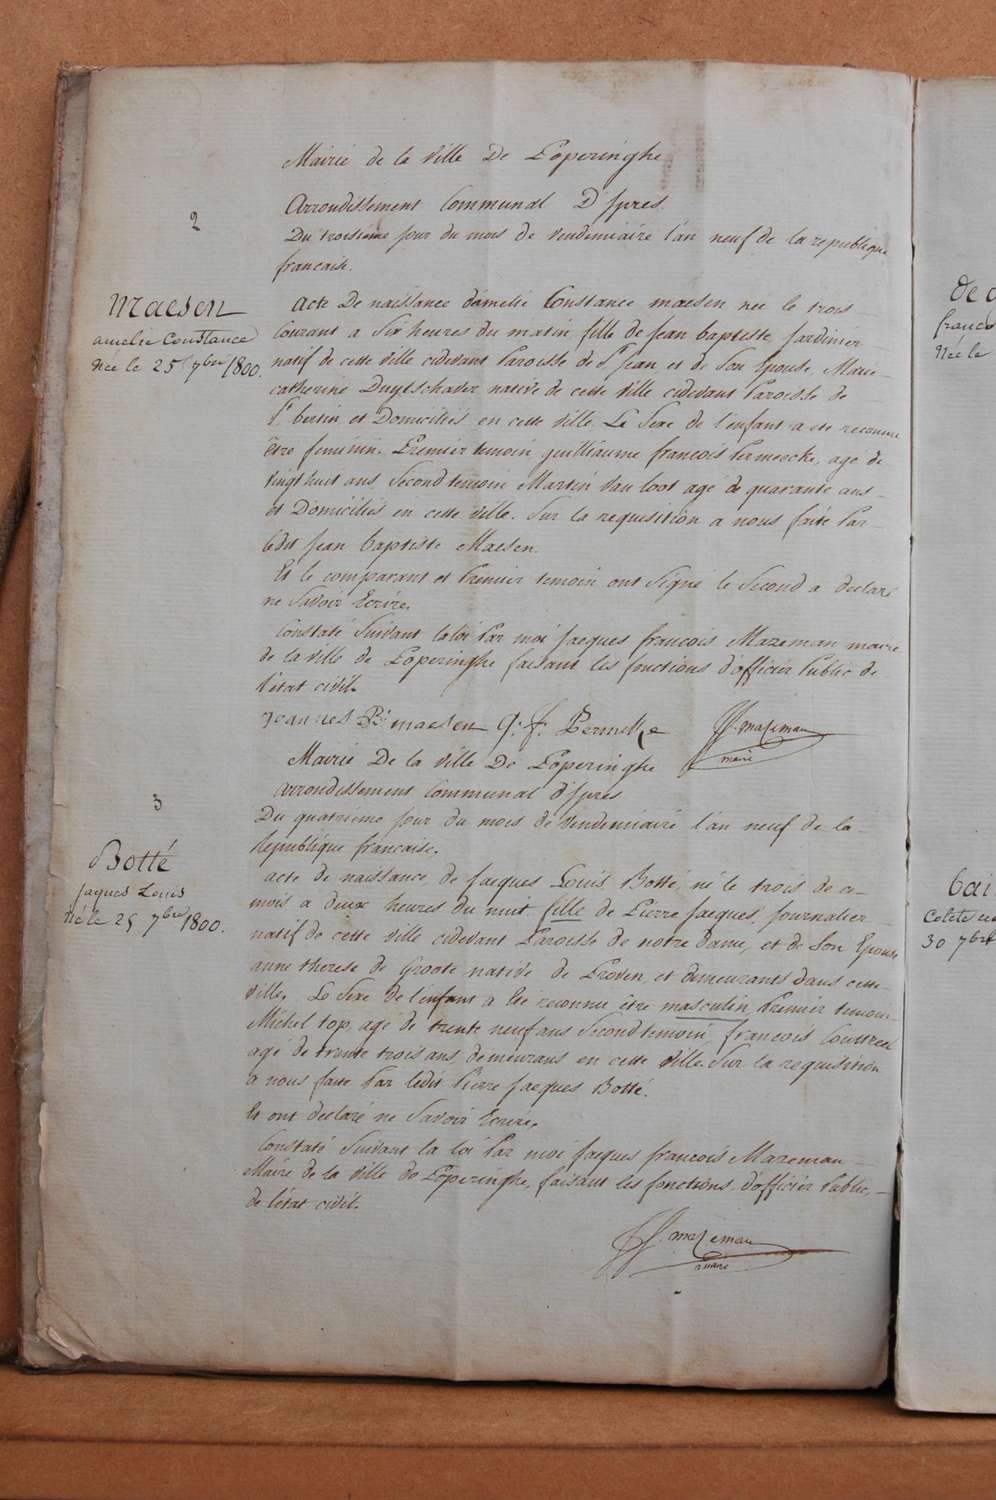 Mairie de la Ville De Poperinghe
Arrondissement Communal D'Ypres.
2
Du troisième jour du mois de Vendemiaire l'an neuf de la republique
francaise.
Maesen
amelie Constance
Née le 25 7bre 1800.
Acte De naissance d'amelie Constance maesen nee le trois
Courant a Six heures du matin fille de jean baptiste, jardinier
natif de cette ville cidevant Paroisse de St jean et de Son Epouse Marie
catherine Duytschaver native de cette ville cidevant Paroisse de
St bertin, et Domiciliés en cette ville. Le Sexe de l'enfant a eté reconnu
être feminin. Premier temoin guilliaume francois Permeecke, agé de
vingt huit ans, Second temoin Martin Van loot agé de quarante ans
et Domiciliés en cette ville. Sur la requisition a nous faite Par
ledit jean baptiste Maesen.
Et le comparant et Premier temoin ont Signé le Second a declaré
ne Savoir Ecrire.
Constaté Suivant la loi Par moi jacques francois Mazeman maire
de la ville de Poperinghe faisant les fonctions d'officier Public de
l'état civil.
Joannes Bt maesen G. F. Permeke JF. mazeman
maire
Mairie De la Ville De Poperinghe
Arrondissement Communal d'Ypres
3
Du quatrieme jour du mois de Vendemiaire l'an neuf de la
Republique francaise.
Botté
jaques Louis
Né le 25 7bre 1800.
acte de naissance, de jacques Louis Botté, né le trois de ce
mois a deux heures du nuit fille de Pierre jacques, journalier
natif de cette ville cidevant Paroisse de notre dame, et de Son Epouse
anne therese de Groote native de Proven, et demeurants dans cette
ville. Le Sexe de l'enfant a Eté reconnu être masculin, Premier temoin
Michel top, agé de trente neuf ans Second temoin, francois Couttreel
agé de trente trois ans demeurans en cette Ville. Sur la requisition
a nous faite Par ledit Pierre jacques Botté.
Et ont declaré ne Savoir Ecrire.
Constaté Suivant la loi Par moi jacques francois Mazeman
Maire de la ville de Poperinghe, faisant les fonctions d'officier Public,
de l'état civil.
JF. mazeman
maire
francois
Née le
bai
30 7bre